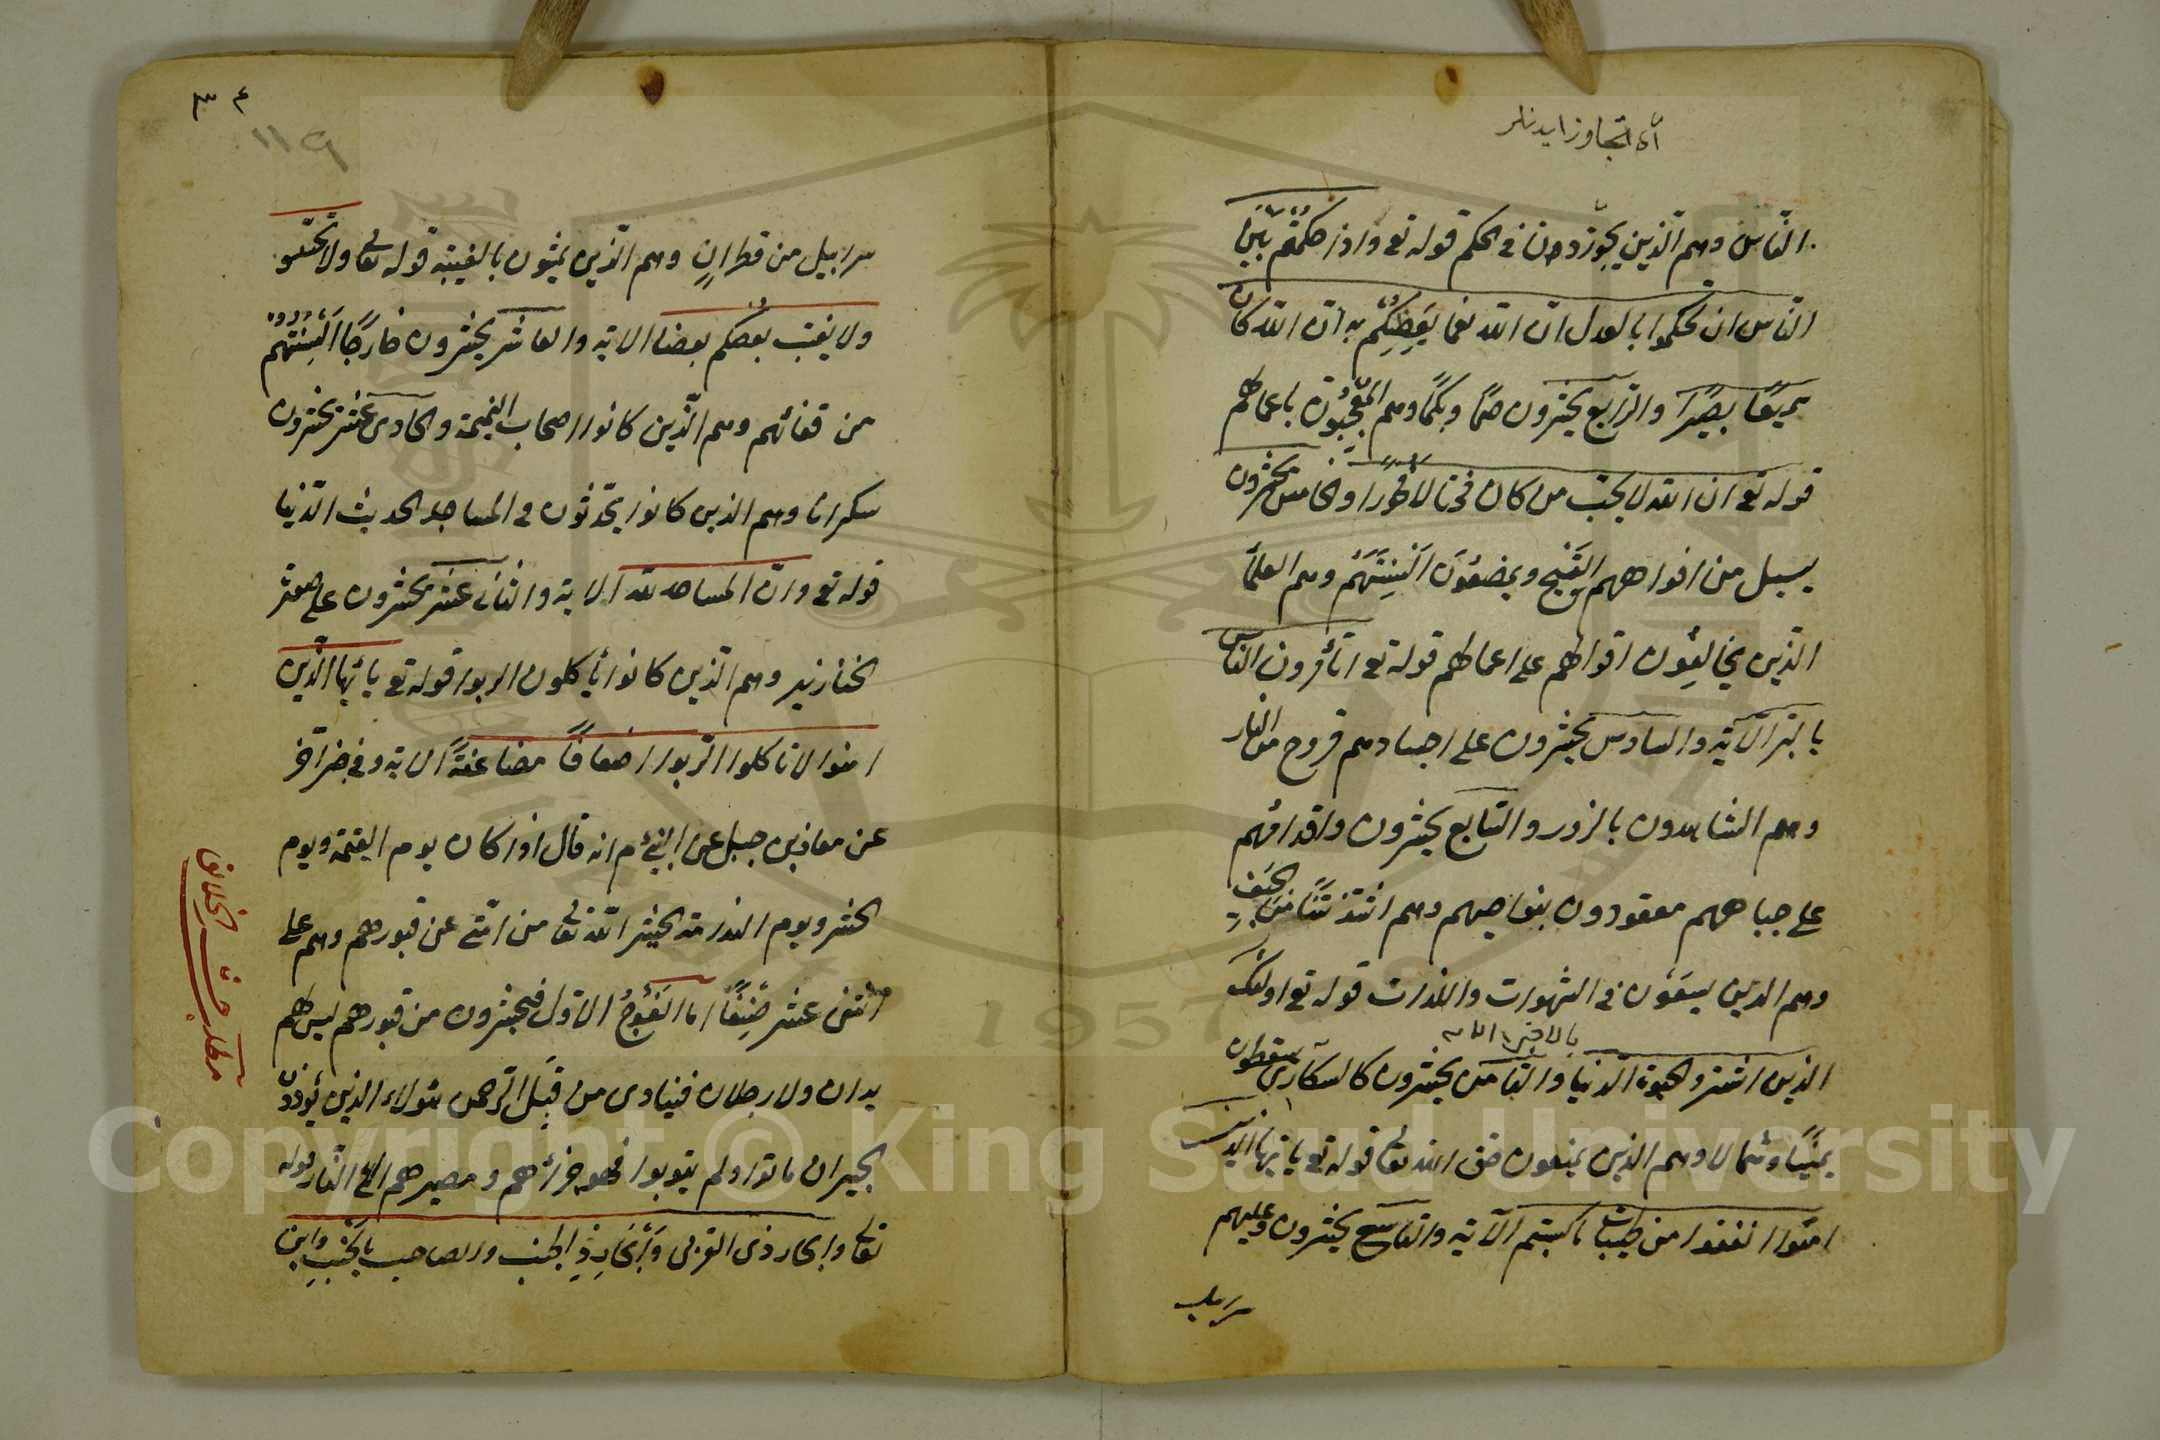 اى تجاوز ايدنلر
الناس وهم الذين يجوزون فى الحكم قوله تع واذا حكمتم بين
الناس ان تحكموا بالعدل ان الله نعما يعظكم به ان الله كان
سميعا بصيرا والرابع يحشرون صما وبكما وهم المعجبون باعمالهم
قوله تع ان الله لا يحب من كان مختالا فخورا والخامس يحشرون
يسيل من افواههم القيح ويمضغون السنتهم وهم العلما
الذين يخالفون اقوالهم على اعمالهم قوله تع اتأمرون الناس
بالبر الآية والسادس يحشرون على اجسادهم قروح من النار
وهم الشاهدون بالزور والسابع يحشرون واقدامهم
على جباههم معقودون بنواصيهم وهم اشد نتنا من الجيف
وهم الذين يسعون فى الشهوات واللذات قوله تع اولئك
بالاخرة الاية
الذين اشتروا الحيوة الدنيا والثامن يحشرون كالسكارى يسقطون
يمينا وشمالا وهم الذين يمنعون حق الله تعالى قوله تع يا ايها الذين
امنوا انفقوا من طيبات ما كسبتم الآية والتاسع يحشرون وعليهم
سرابيل
٣٤
١١٩
سرابيل من قطران وهم الذين يمشون بالغيبة قوله تعالى ولا تجسسوا
ولا يغتب بعضكم بعضا الاية والعاشر يحشرون خارجا السنتهم
من قفائهم وهم الذين كانوا اصحاب النميمة والحادى عشر يحشرون
سكرانا وهم الذين كانوا يحدثون فى المساجد الحديث الدنيا
قوله تع وان المساجد لله الاية والثانى عشر يحشرون على صورة
الخنازير وهم الذين كانوا يأكلون الربوا قوله تع يا ايها الذين
امنوا لا تاكلوا الربوا اضعافا مضاعفة الاية وفى خبر آخر
عن معاذ بن جبل عن النبى م انه قال اذا كان يوم القيمة ويوم
الحشر ويوم الندامة يحشر الله تعالى من امتى عن قبورهم وهم على
اثنى عشر صنفا اما الفوج الاول فيحشرون من قبورهم ليس لهم
يدان ولا رجلان فينادى من قبل الرحمن هؤلاء الذين يؤذون
الجيران ماتوا ولم يتوبوا فهو جزائهم ومصيرهم الى النار قوله
تعالى والجار ذى القربى والجار الجنب والصاحب بالجنب وابن
مطلب حشر الخلائق
Copyright © King Saud University
1957